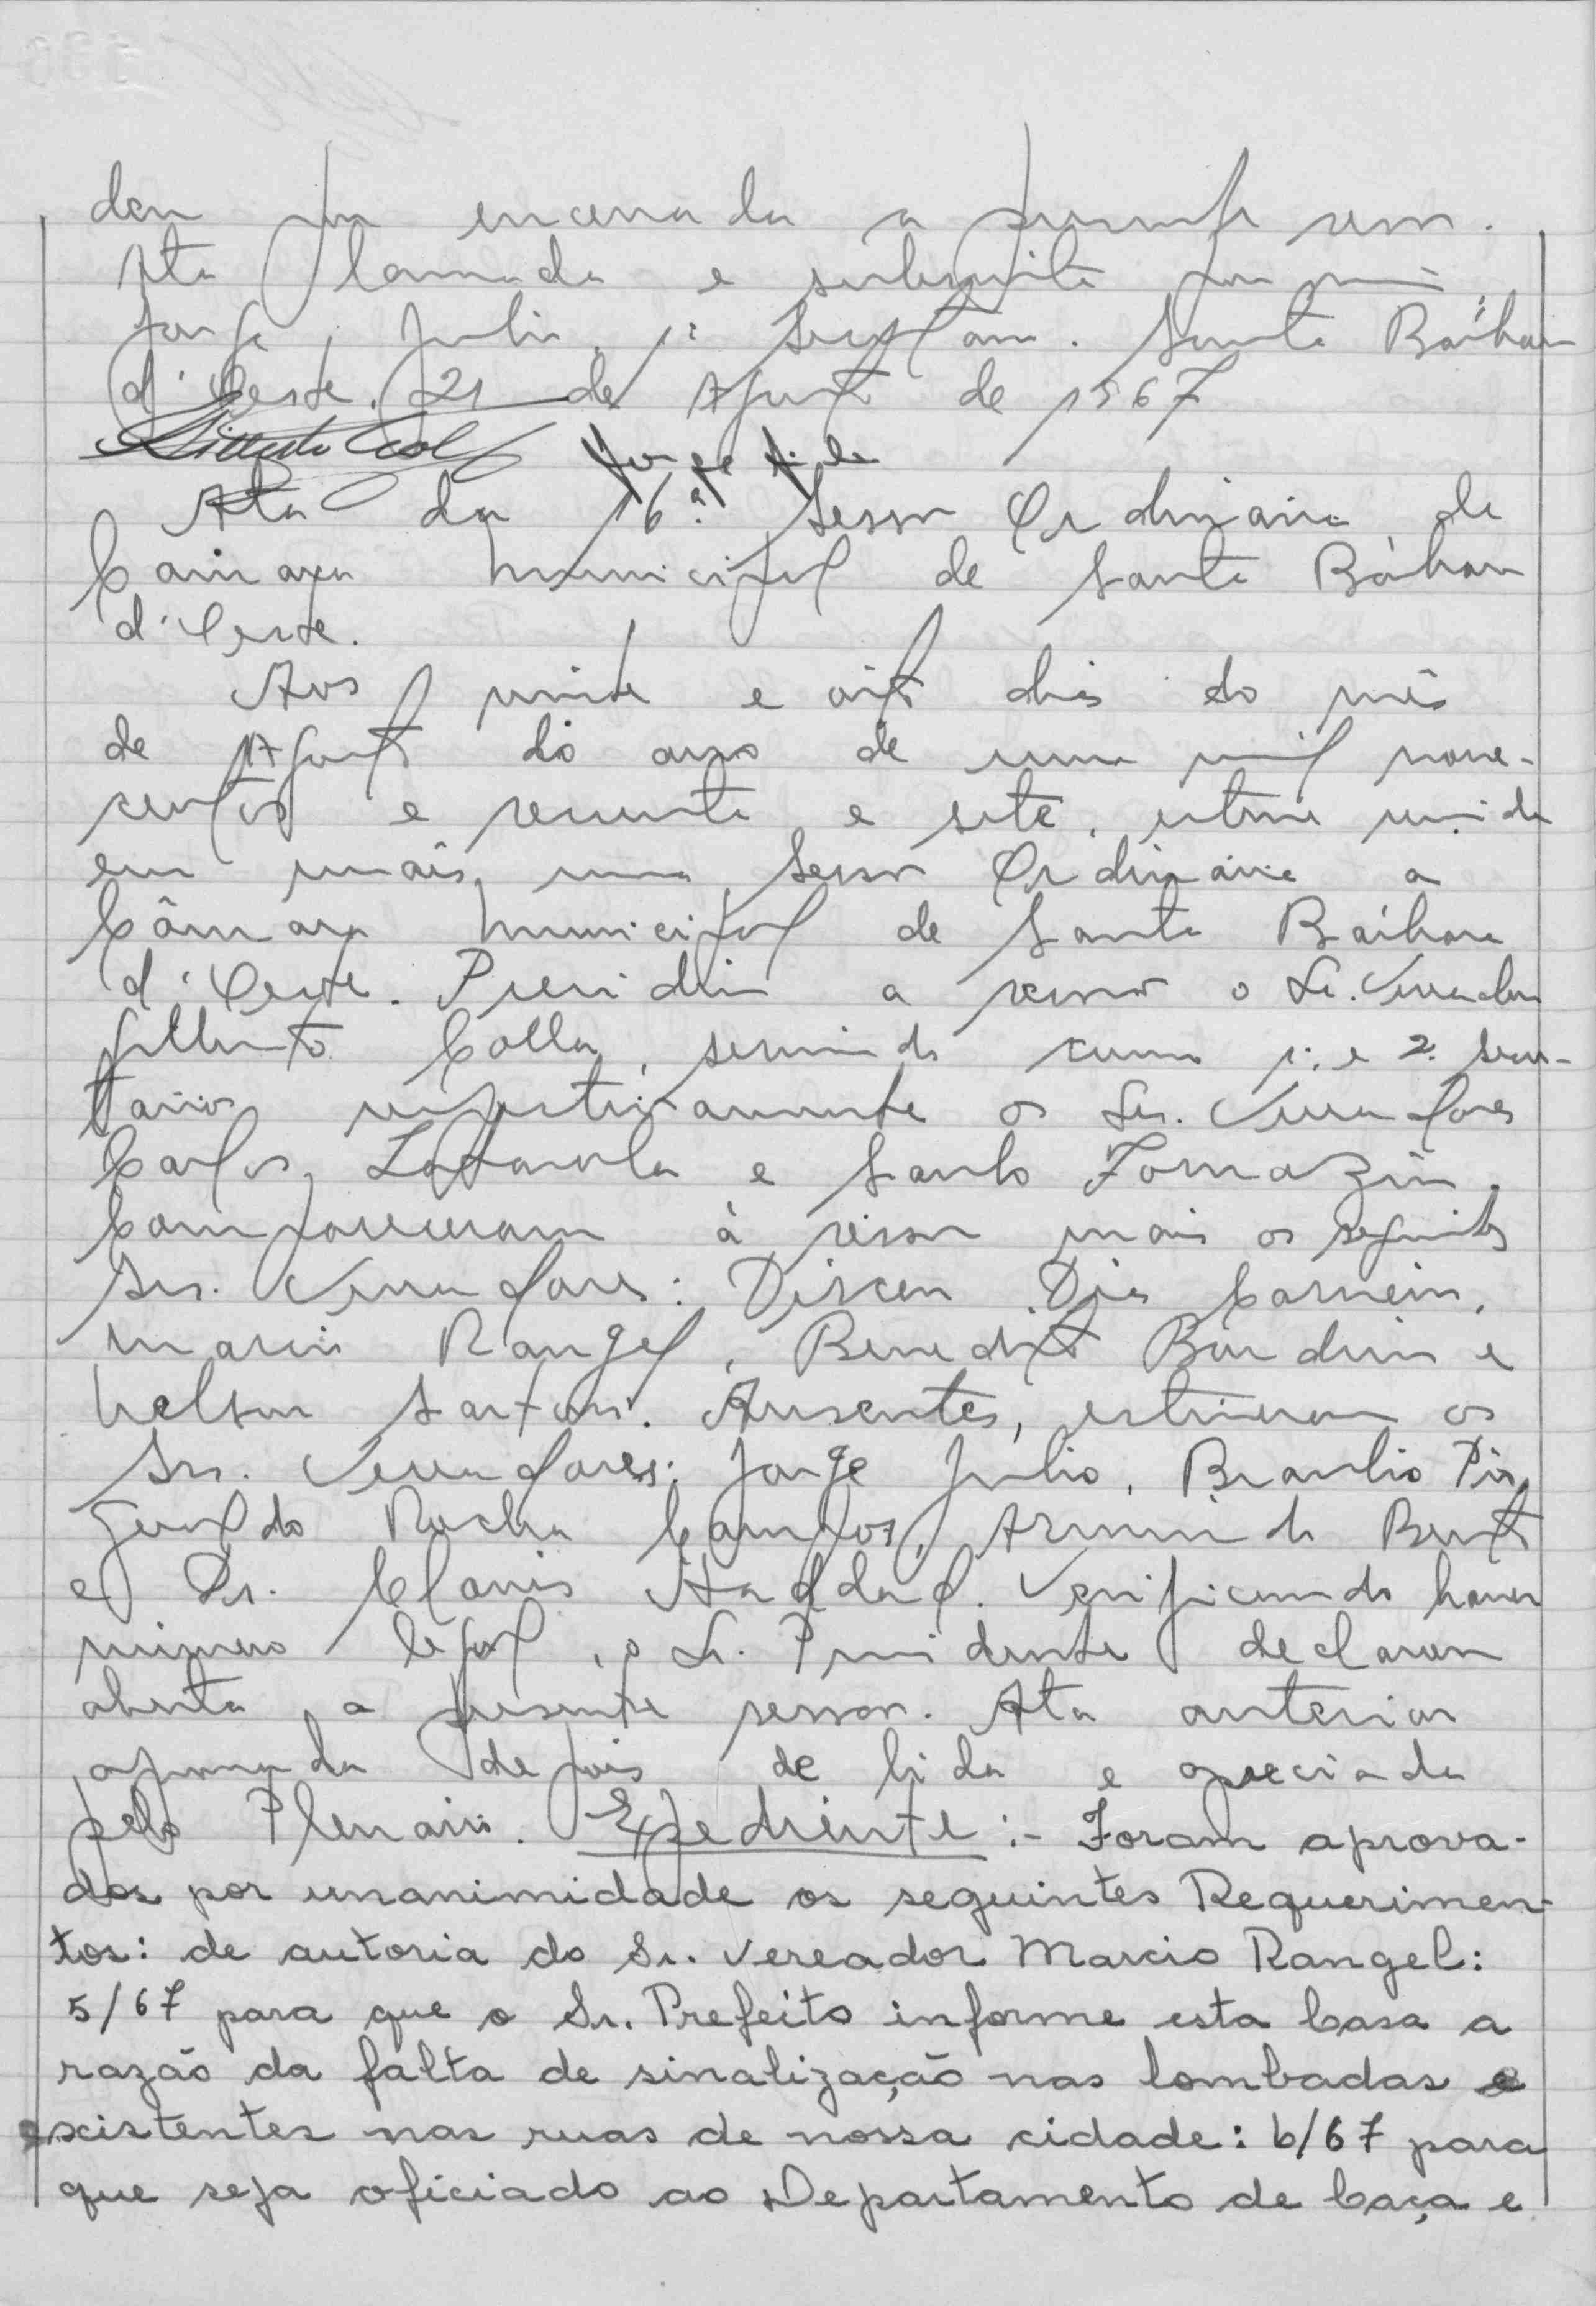 deu por encerrada a presente sessão.
Ata lavrada e subscrita por mim
Jorge Julio, 1º Secretário. Santa Bárbara
d'Oeste, 21 de Agosto de 1967
Jorge Julio
Ata da 16.ª Sessão Ordinária da
Câmara Municipal de Santa Bárbara
d'Oeste.
Aos vinte e oito dias do mês
de Agosto do ano de um mil nove-
centos e sessenta e sete, esteve reunida
em mais uma Sessão Ordinária a
Câmara Municipal de Santa Bárbara
d'Oeste. Presidiu a sessão o Sr. Vereador
Gilberto Colla, servindo como 1º e 2º Secre-
tários respectivamente os Srs. Vereadores
Carlos e Santo Tomazin.
Compareceram à sessão mais os seguintes
Srs. Vereadores: Dirceu Dias Carneiro,
Marcio Rangel, Benedito e
Nelson Sartori. Ausentes, estiveram os
Srs. Vereadores: Jorge Julio, Braulio Pio,
Geraldo Rocha Campos, Armindo
e Dr. Clovis Haddad. Verificando haver
número legal, o Sr. Presidente declarou
aberta a presente sessão. Ata anterior
aprovada depois de lida e apreciada
pelo Plenário. Expediente :- Foram aprova-
dos por unanimidade os seguintes Requerimen-
tos: de autoria do Sr. Vereador Marcio Rangel:
5/67 para que o Sr. Prefeito informe esta Casa a
razão da falta de sinalização nas lombadas e
existentes nas ruas de nossa cidade: 6/67 para
que seja oficiado ao Departamento de Caça e